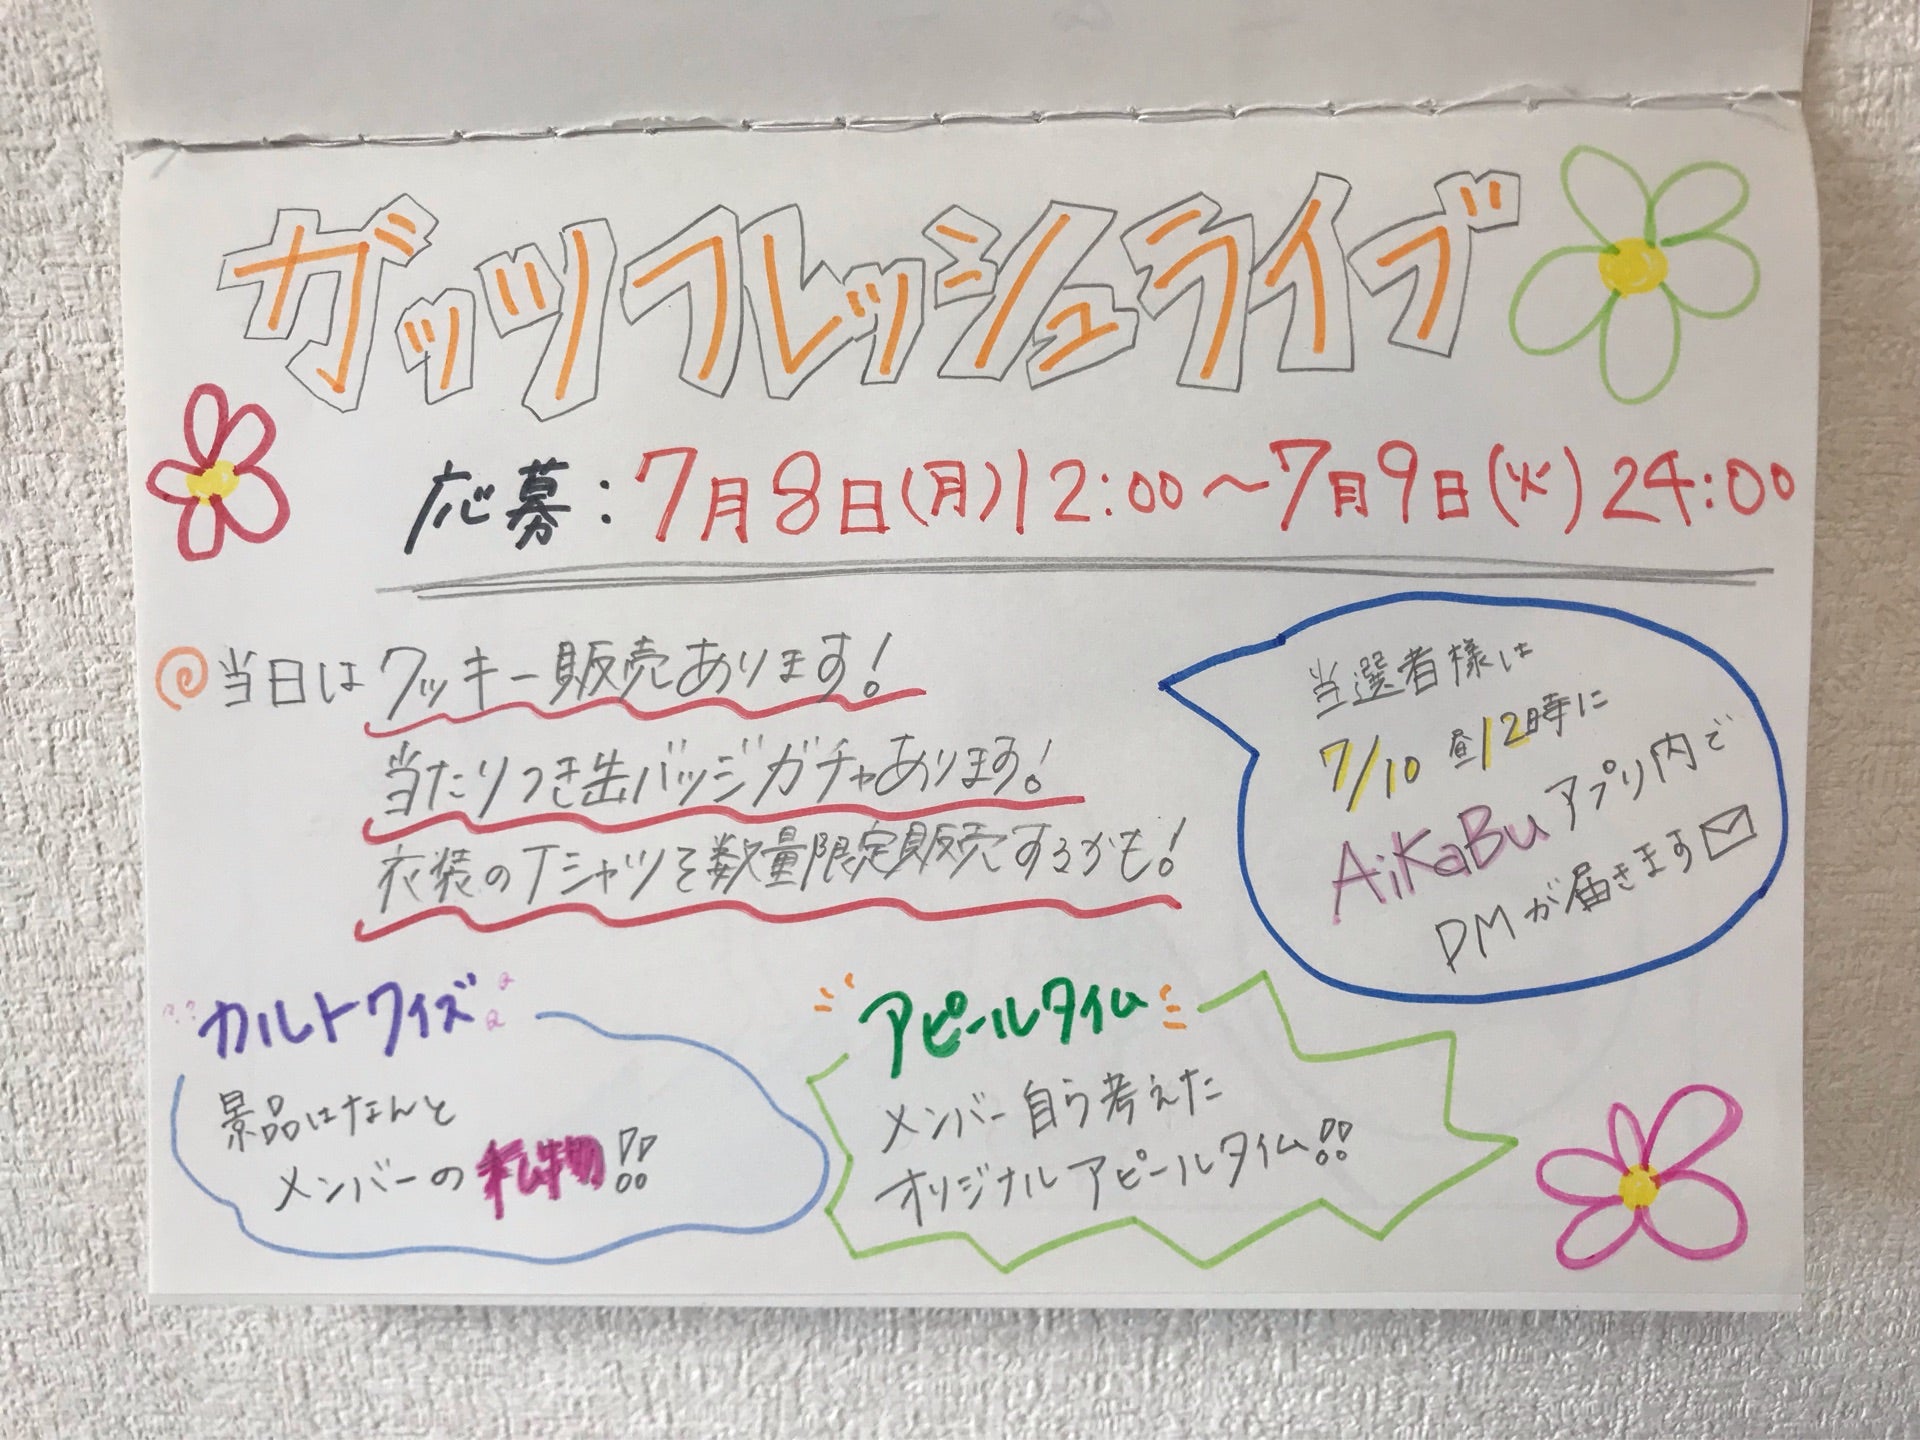 ガッツフレッシュライブ
応募：7月8日(月)12:00～7月9日(火)24:00
当日はクッキー販売あります！
当たりつき缶バッジガチャあります！
衣装のTシャツを数量限定販売するかも！
当選者様は
7/10 昼12時に
AiKaBuアプリ内で
DMが届きます
カルトクイズ
景品はなんと
メンバーの私物!!
アピールタイム
メンバー自ら考えた
オリジナルアピールタイム!!